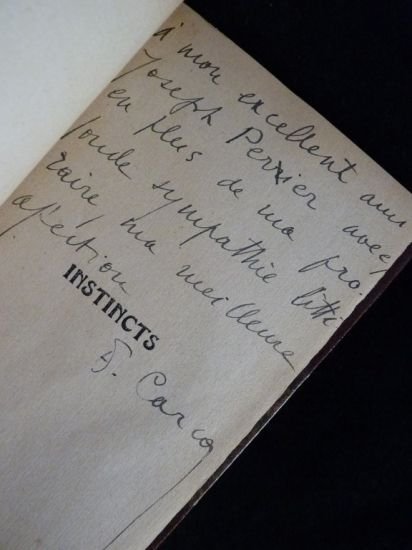 à mon excellent ami
Joseph Perrier avec,
en plus de ma pro-
fonde sympathie litté
raire, ma meilleure
affection
INSTINCTS
F. Carco